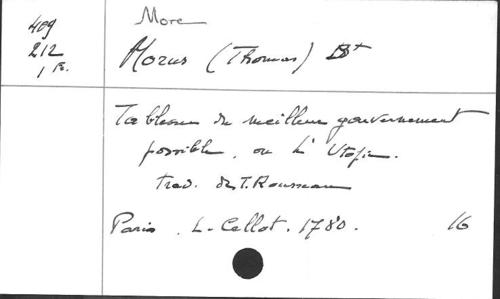 More
409
212
1 R.
Morus (Thomas) Bt
Tableau du meilleur gouvernement
possible, ou L' Utopie.
trad. de T. Rousseau
Paris. L. Cellot. 1780. 16